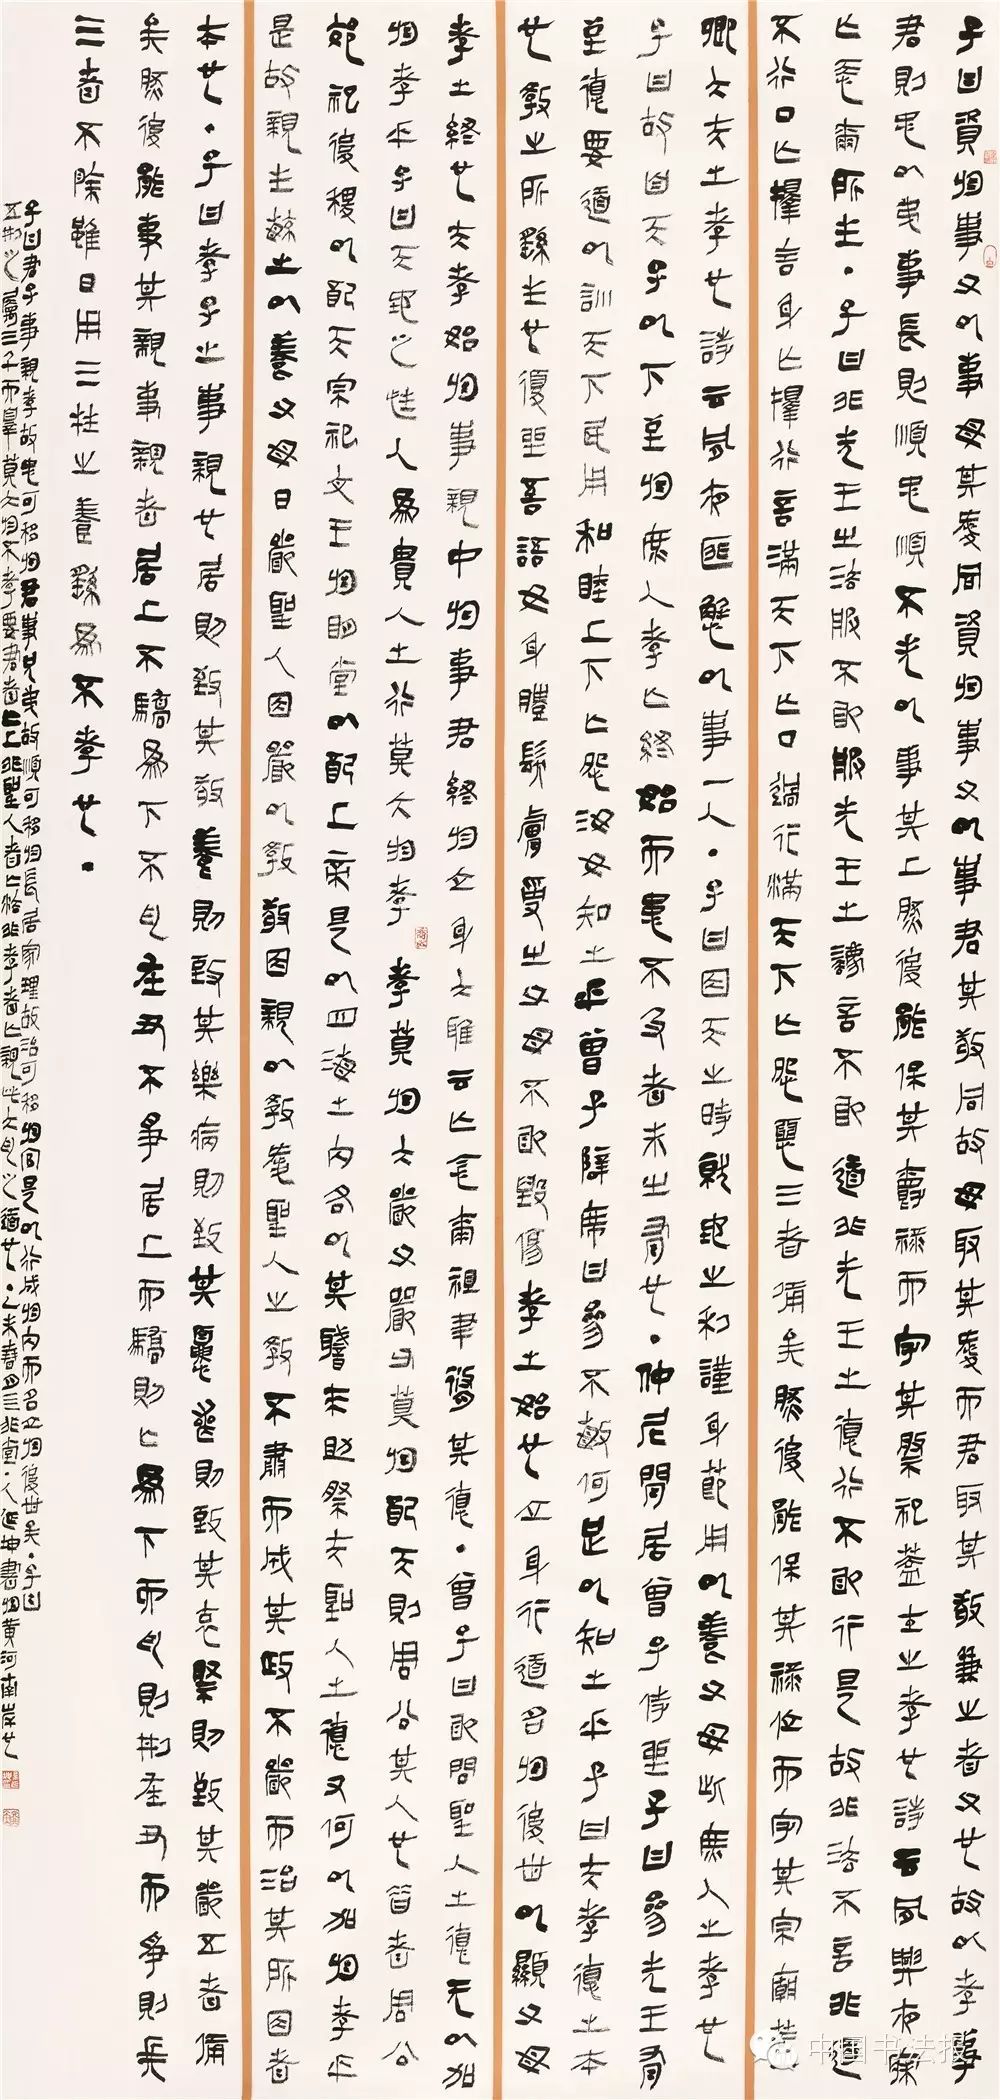 子曰資於事父以事母其愛同資於事父以事君其敬同故母取其愛而君取其敬兼之者父也故以孝事
君則忠以弟事長則順忠順不失以事其上然後能保其爵祿而守其祭祀蓋士之孝也詩云夙興夜寐
亡忝爾所生·子曰非先王之法服不敢服先王之言不敢道非先王之德行不敢行是故非法不言非道
不行口亡擇言身亡擇行言滿天下亡口過行滿天下亡怨惡三者備矣然後能保其祿位而守其宗廟蓋
卿大夫之孝也詩云夙夜匪懈以事一人·子曰因天之時就地之利謹身節用以養父母此庶人之孝也
子曰故自天子以下至於庶人孝亡終始而患不及者未之有也·仲尼閒居曾子侍坐子曰參先王有
至德要道以訓天下民用和睦上下亡怨汝知之乎曾子避席曰參不敏何足以知之乎子曰夫孝德之本
也教之所繇生也復坐吾語女身體髮膚受之父母不敢毀傷孝之始也立身行道名於後世以顯父母
孝之終也夫孝始於事親中於事君終於立身大雅云亡念爾祖聿脩其德·曾子曰敢問聖人之德无以加
於孝乎子曰天地之性人為貴人之行莫大於孝孝莫於大嚴父嚴父莫於配天則周公其人也昔者周公
郊祀后稷以配天宗祀文王於明堂以配上帝是以四海之內各以其職來助祭夫聖人之德又何以加於孝乎
是故親生毓之以養父母日嚴聖人因嚴以教敬因親以教愛聖人之教不肅而成其政不嚴而治其所因者
本也·子曰孝子之事親也居則致其敬養則致其樂病則致其憂喪則致其哀祭則致其嚴五者備
矣然後能事其親事親者居上不驕為下不亂在丑不爭居上而驕則亡為下而亂則刑在丑而爭則兵
三者不除雖日用三牲之養繇為不孝也·
子曰君子事親孝故忠可移於君事兄弟故順可移於長居家理故治可移於官是以行成於內而名立於後世矣·子曰
五刑之屬三千而辠莫大於不孝要君者亡上非聖人者亡法非孝者亡親此大亂之道也·人延坤書於黃河南岸也
中国书法报